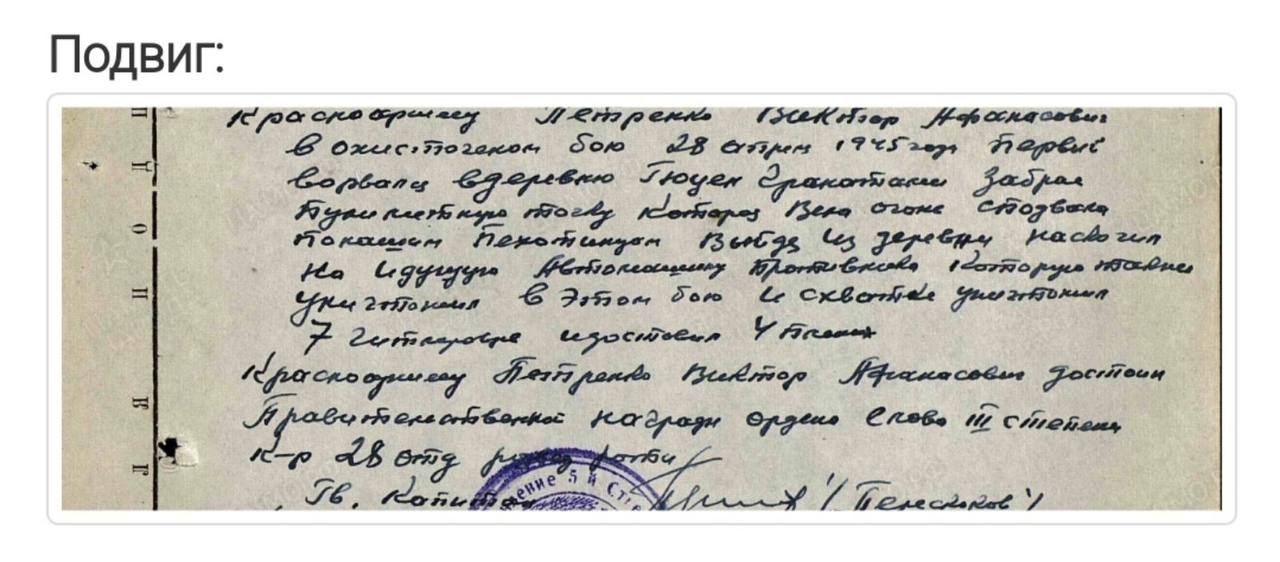 Подвиг:
Красноармеец Петренко Виктор Афанасович
в ожисточеном бою 28 апреля 1945 года первый
ворвался в деревню гранатами забрал
пулиметную точку которая вела огонь
по нашим пехотинцам выйдя из деревни наскочил
на идущую Автомашину противника которую также
уничтожил в этом бою и схватке уничтожил
7 гитлеровце и доставил 4 плених
Красноармеец Петренко Виктор Афанасович достоин
Правительственной награды ордена Слово III степени
к-р 28 отд развед роты
Гв. Капитан